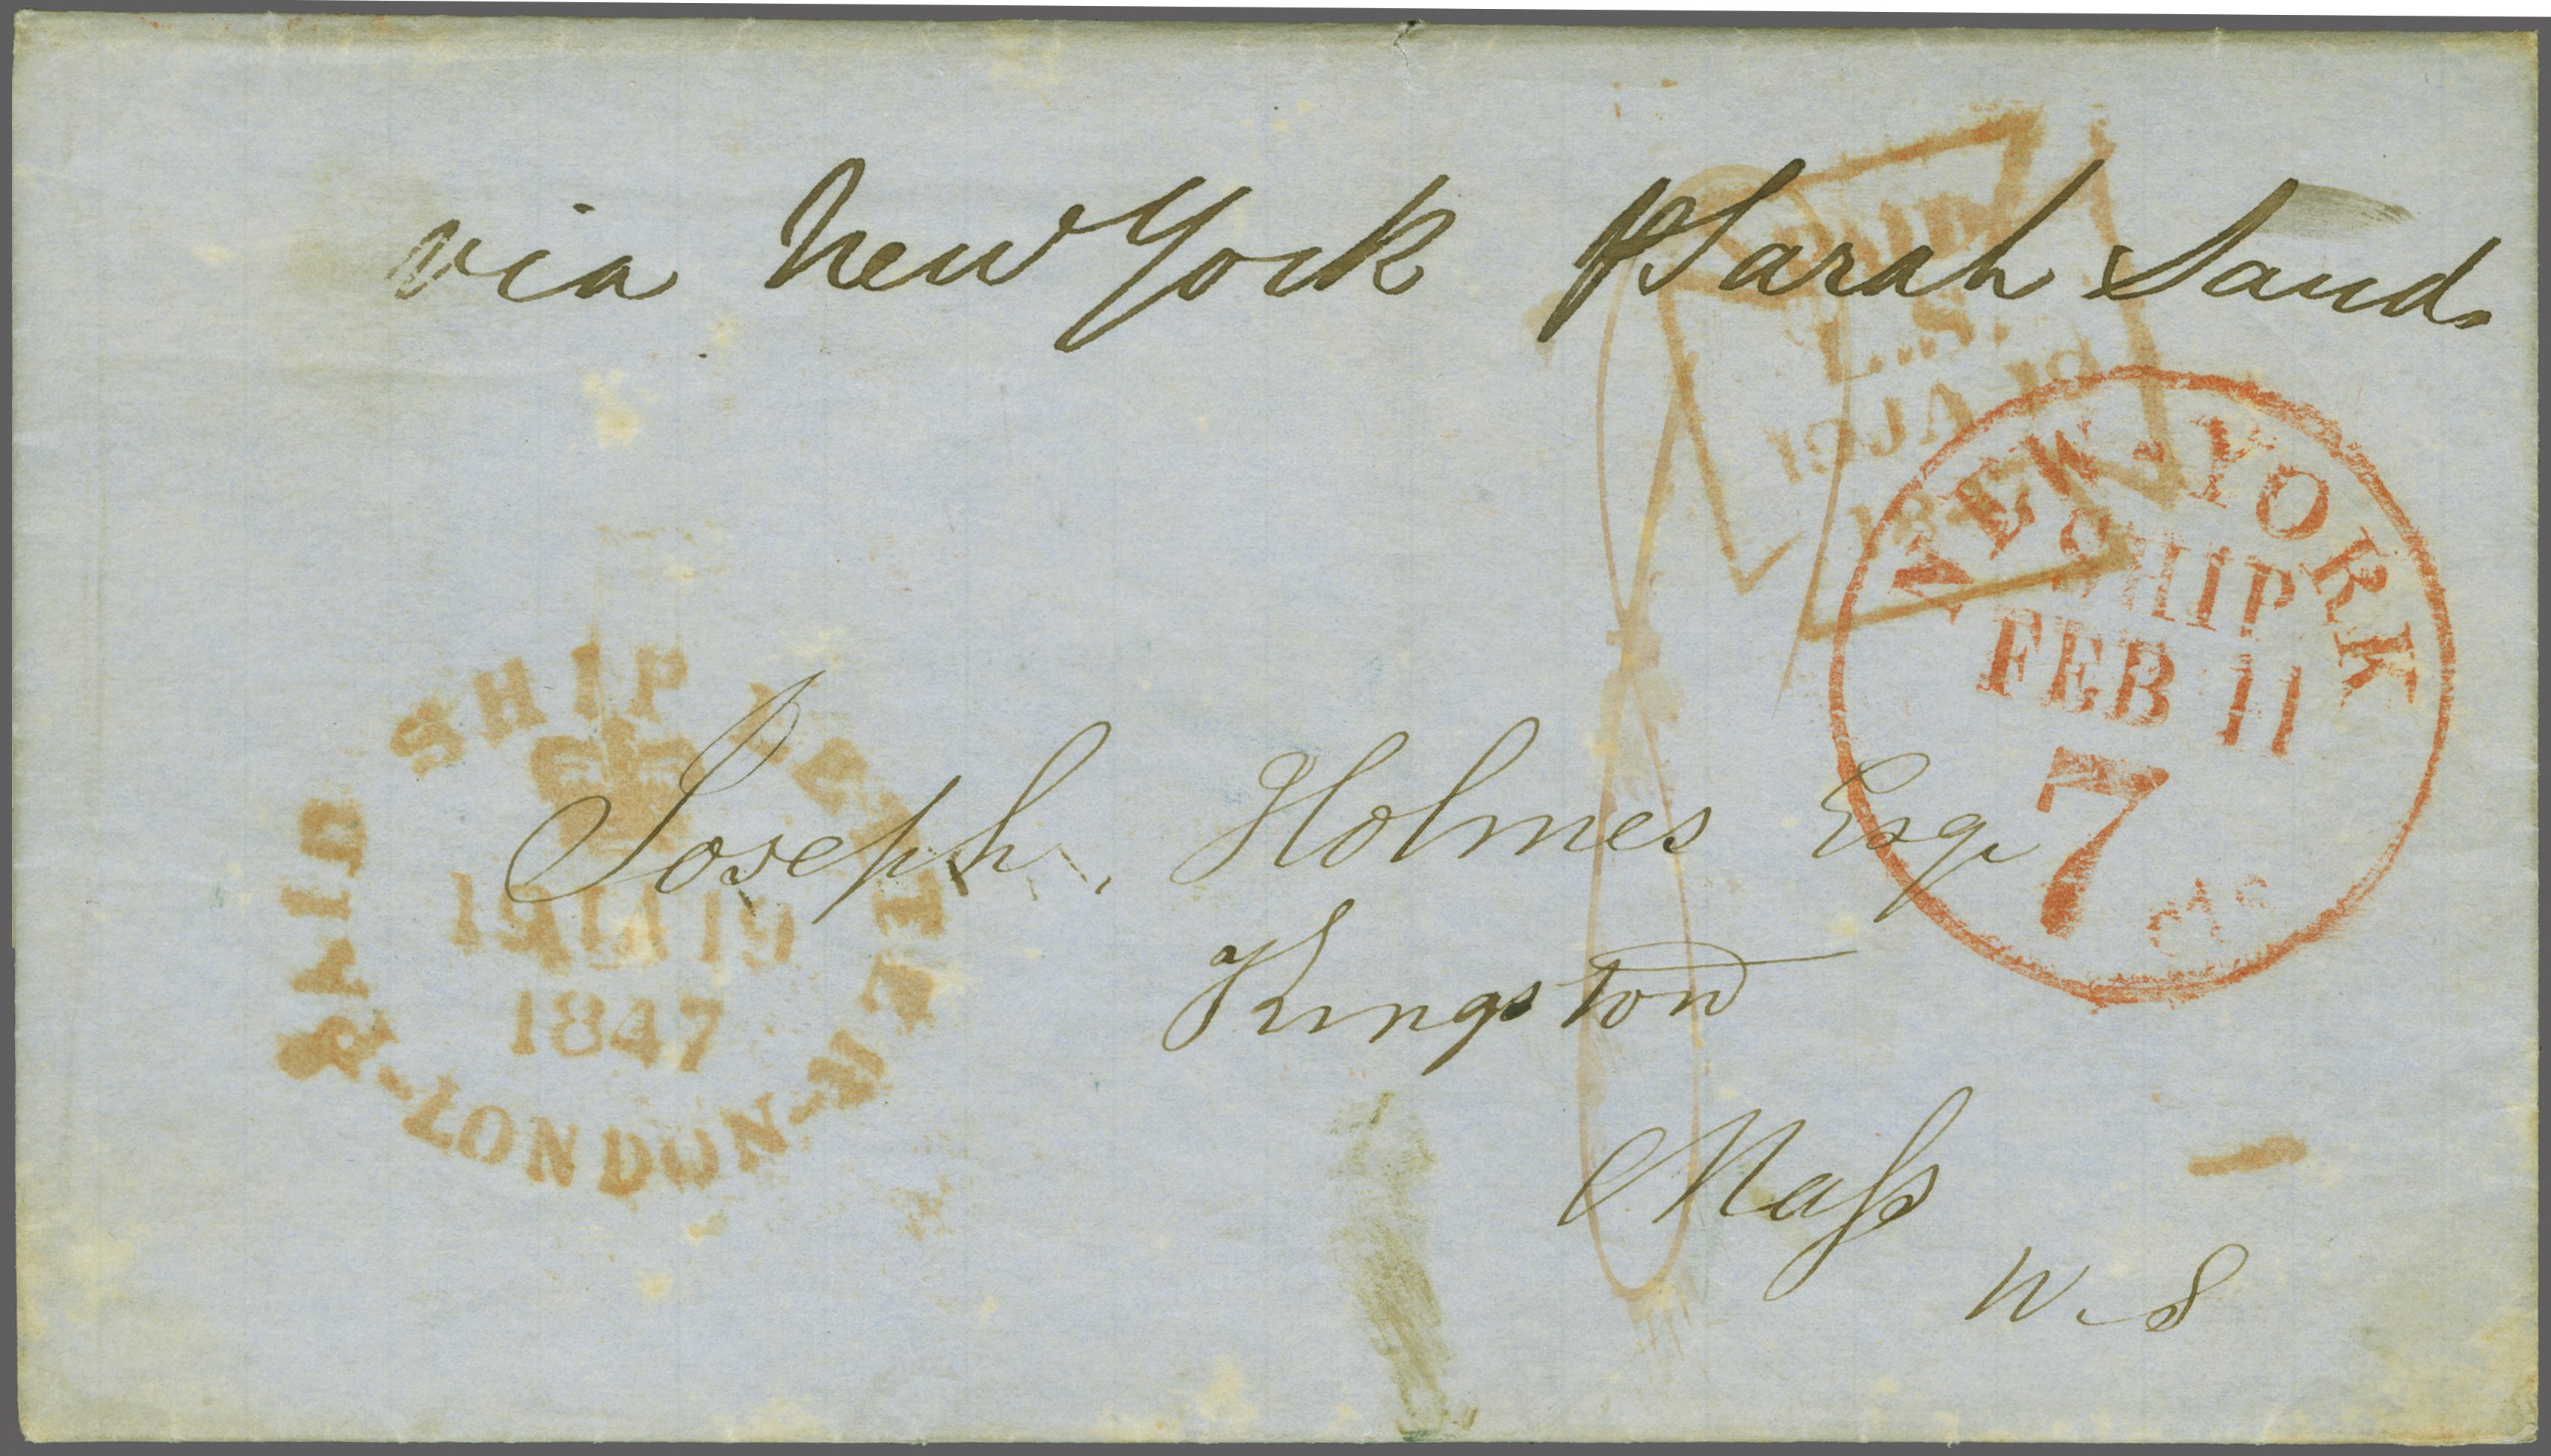 via New York ⅌ Sarah Sand
PAID
L.S.
19 JA 19
NEW-YORK
SHIP
FEB 11
7
cts
PAID SHIP LETTER -LONDON-
19 JA 19
1847
Joseph Holmes Esq
Kingston
Mass